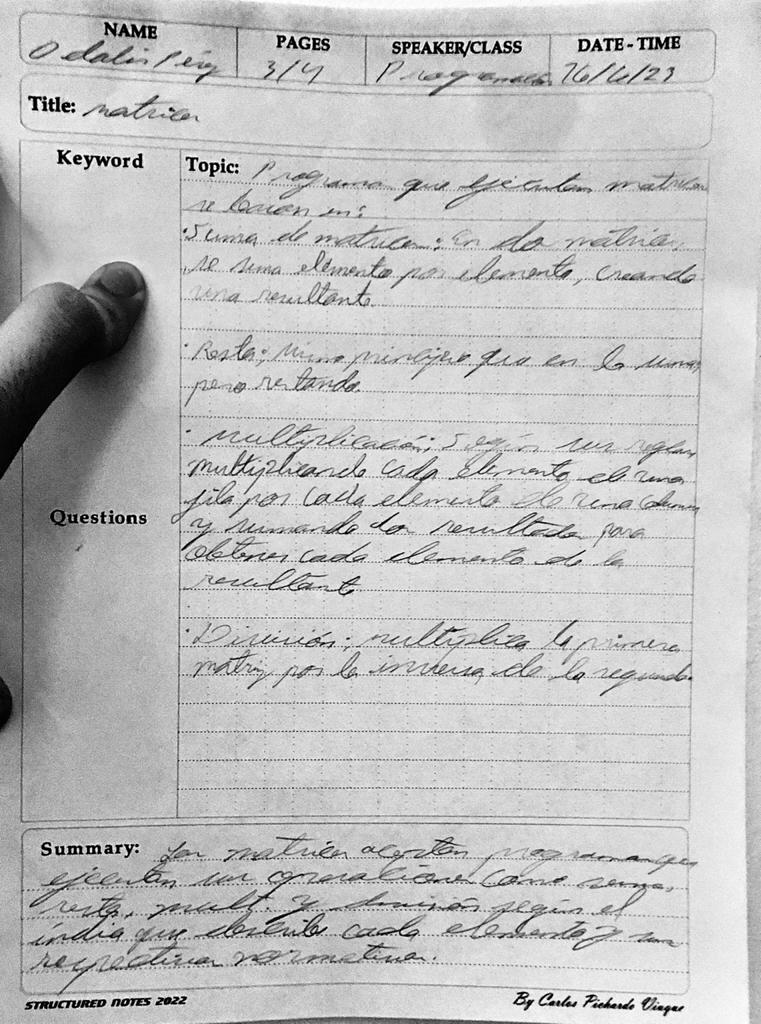 NAME PAGES SPEAKER/CLASS DATE - TIME
Odalis Pérez 3/4 Programación 26/6/23
Title: matrices
Keyword
Topic: Programas que ejecutan matrices
se basan en:
· Suma de matrices: En dos matrices,
se suma elemento por elemento, creando
una resultante.
· Resta: mismo principio que en la suma,
pero restando.
· Multiplicación: Según sus reglas,
multiplicando cada elemento de una
fila por cada elemento de una columna
Questions
y sumando los resultados para
obtener cada elemento de la
resultante
· División: multiplica la primera
matriz por la inversa de la segunda.
Summary: Las matrices aceptan programas que
ejecutan sus operaciones como suma,
resta, mult. y división según el
índice que describe cada elemento y sus
respectivas normativas.
STRUCTURED NOTES 2022
By Carlos Pichardo Viuque